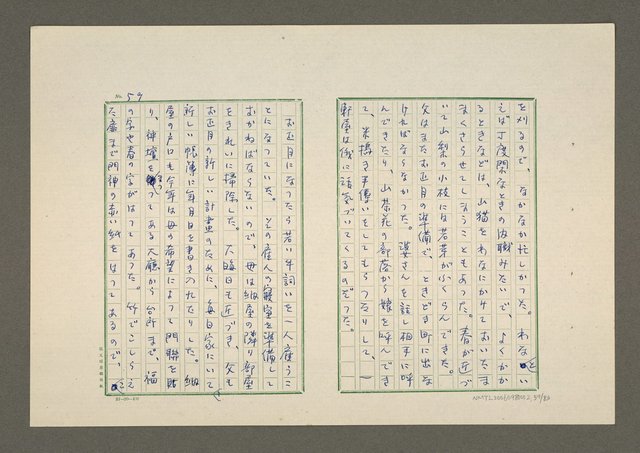 を刈るのて、なかなか忙しかつた。わなとい
えば丁度閑なときの内職みたいで、よくかか
るときなどは、山猫をわなにかけておいたま
まくさらせてしまうこともあつた。春が近づ
いて山梨の小枝には若芽がふくらんできた。
父はまたお正月の準備で、ときどき町に出な
ければならなかつた。婆さんを話し相手に呼
んできたり、山茶花の部落から娘を呼んでき
て、米搗き手傳いをしてもらつたりして、一
軒屋は俄に活気づいてくるのだつた。
お正月になつたら若い牛飼いを一人雇うこ
とになつていた。その雇人の寝室を準備して
おかねばならないので、母は納屋の隣り部屋
をきれいに掃除した。大晦日も近づき、父も
お正月の新しい計畫のために、毎日家にいて
新しい帳簿に年月日を書き入れたりした。納
屋の戸口も今年は母の希望によつて門聯を貼
り、神壇を飾つてある大廳から台所まで、福
の字や春の字がはつてあつた。竹でこしらえ
た扉まで門神の赤い紙をはつてあるので、こ
No. 59
NMTL20061098002, 59/83